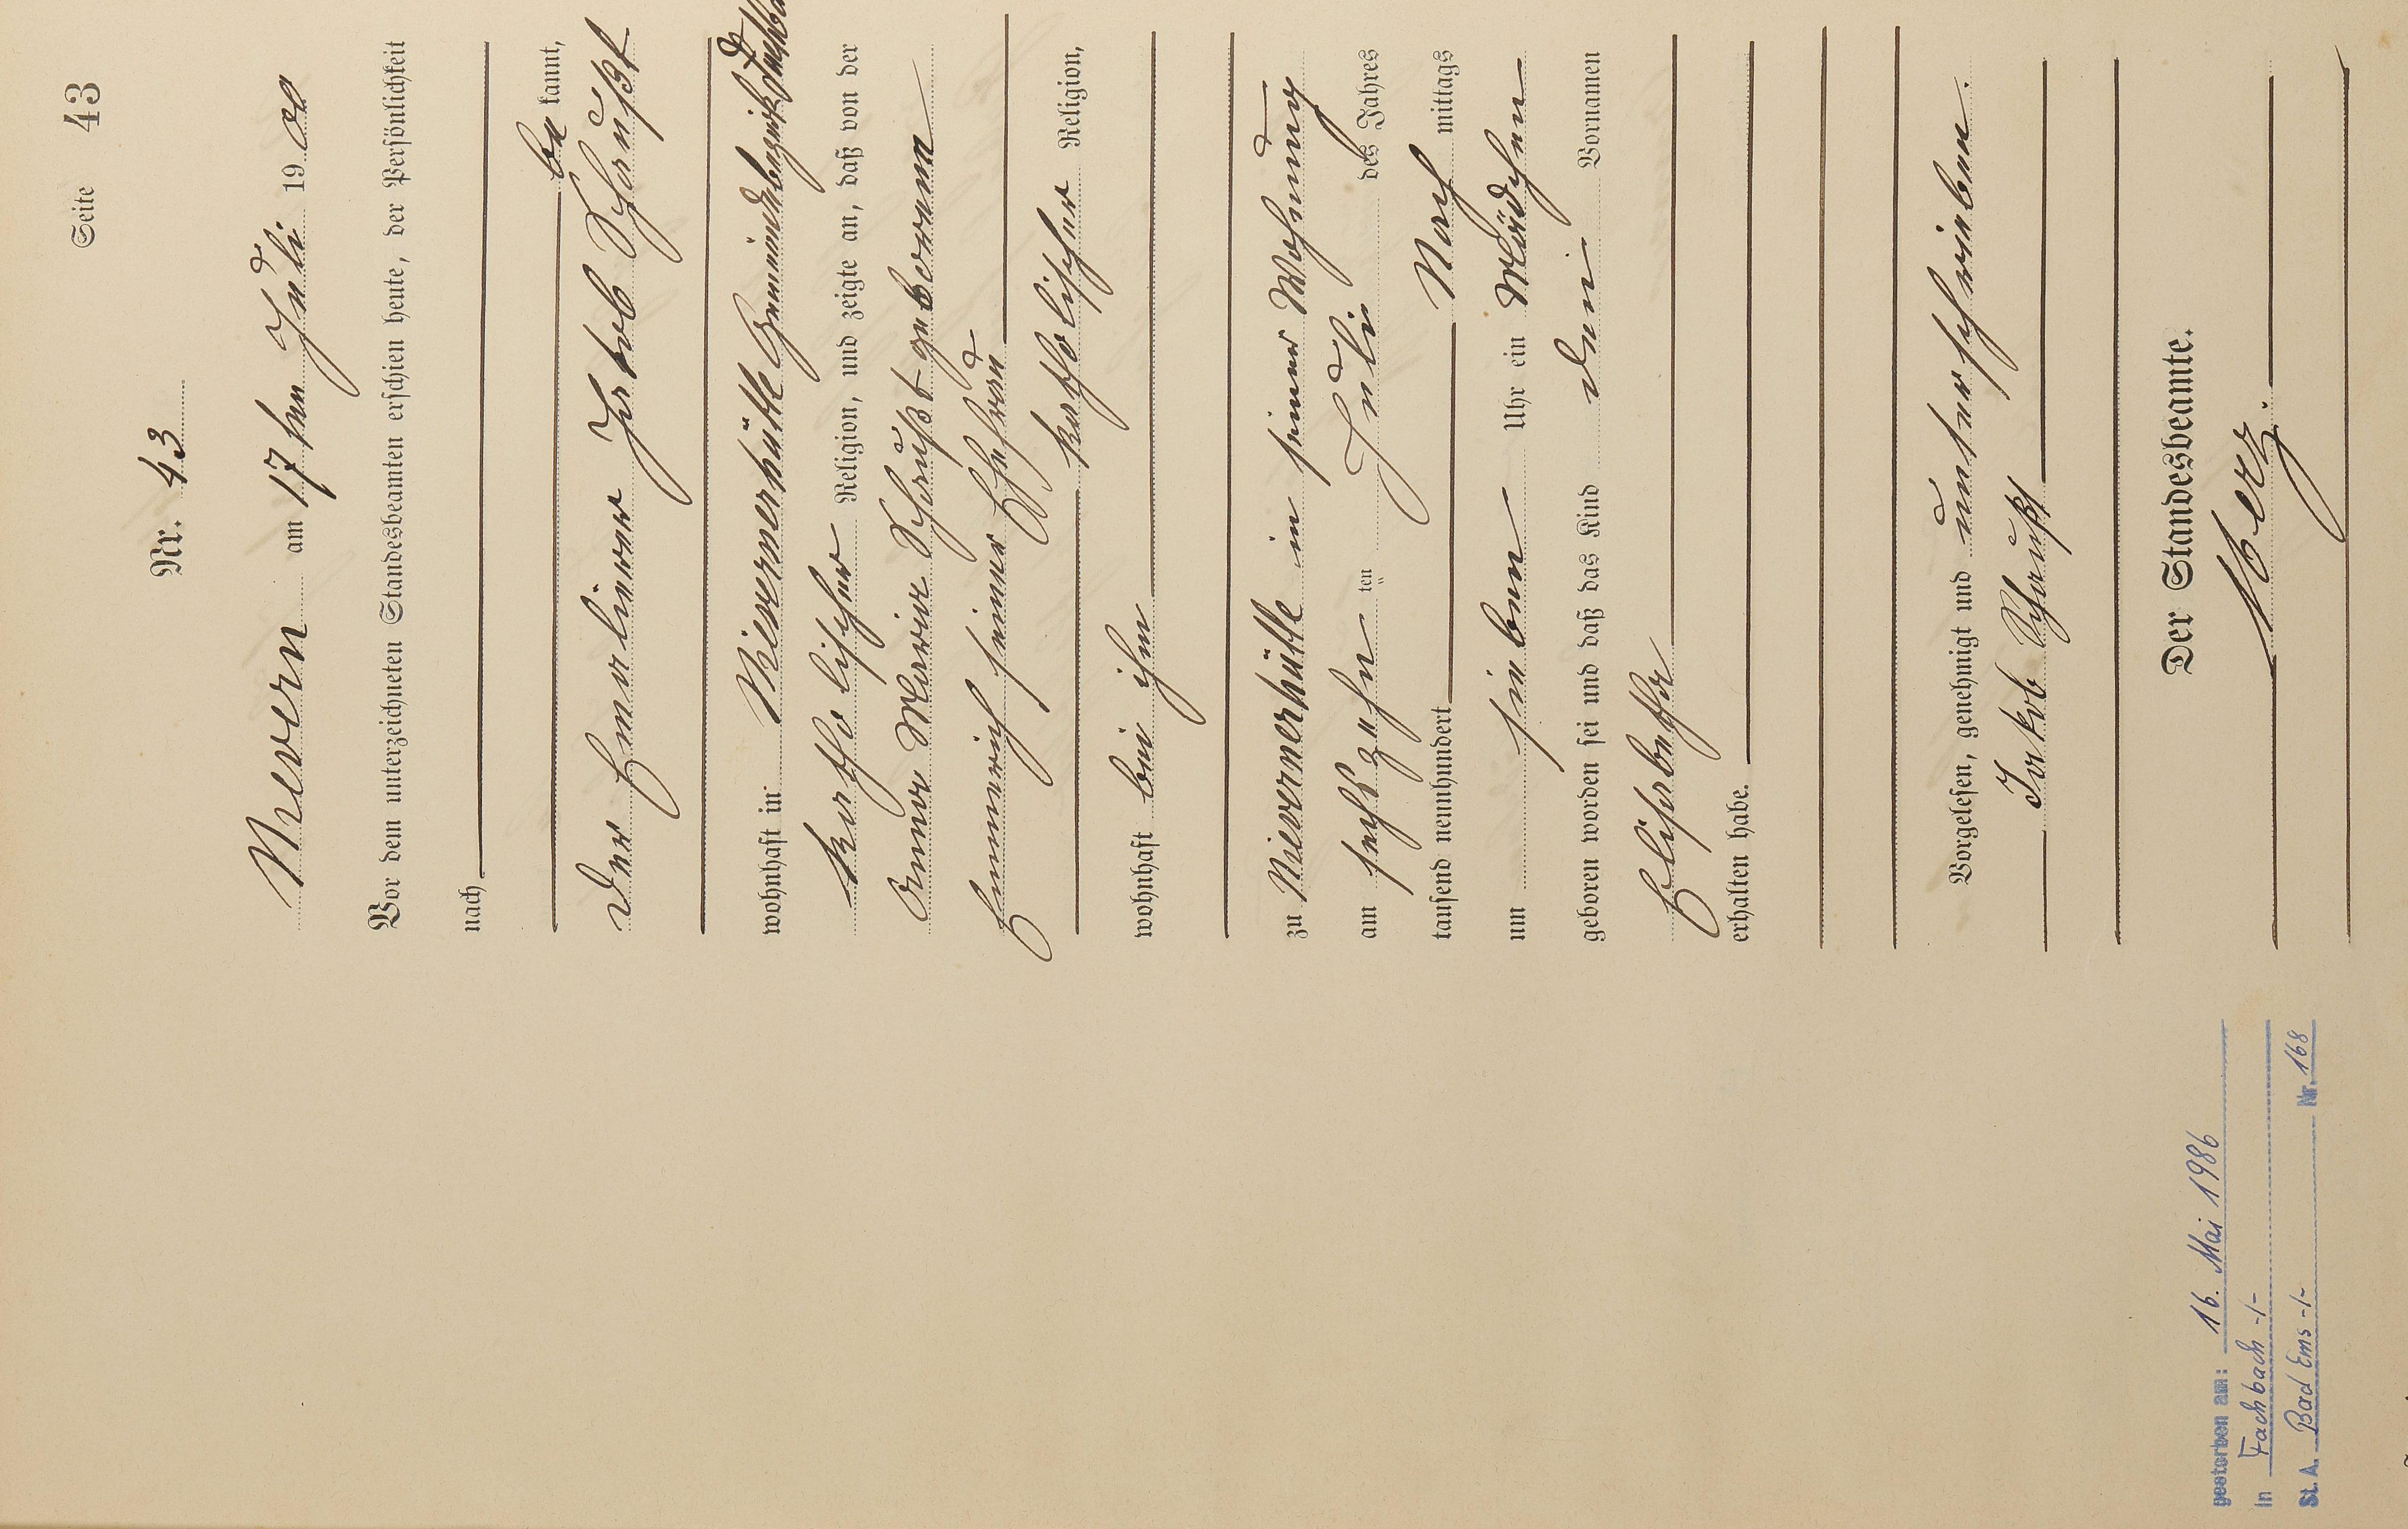 Seite 43
Nr. 43
Nievern am 17ten Juli 1900
Vor dem unterzeichneten Standesbeamten erschien heute, der Persönlichkeit
nach
be kannt,
der Emallierer Jakob Schaust
wohnhaft in Nievernerhütte Gemeindebezirk Fachbach
katholischer Religion, und zeigte an, daß von der
Anna Maria Schaust geborenen
Emmerich seiner Ehefrau
katholischer Religion,
wohnhaft bei ihm
zu Nievernerhütte in seiner Wohnung
am sechszehn ten Juli des Jahres
tausend neunhundert Nach mittags
um sieben Uhr ein Mädchen
geboren worden sei und daß das Kind den Vornamen
Elisabetha
erhalten habe.
Vorgelesen, genehmigt und unterschrieben.
Jakob Schaust
Der Standesbeamte.
gestorben am: 16. Mai 1986
in Fachbach -/-
St. A. Bad Ems -/- Nr. 168